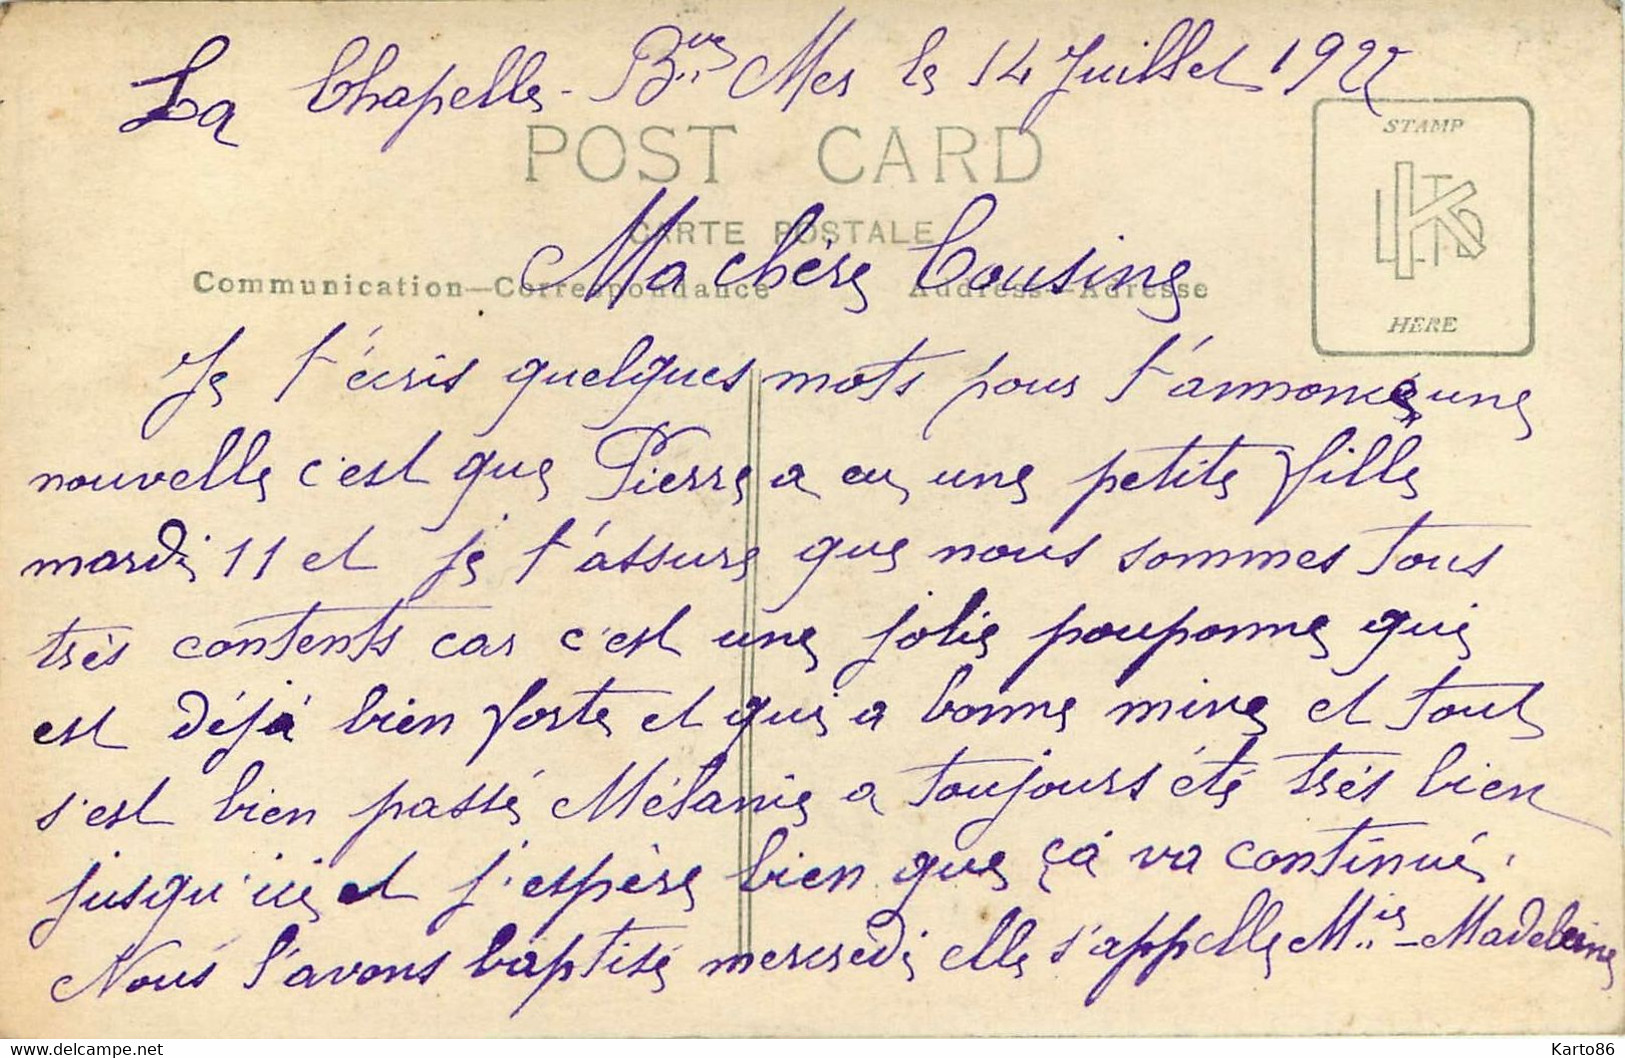 La Chapelle-Bsse Mer le 14 Juillet 1922
POST CARD
STAMP
CARTE POSTALE
K LTD
Ma chère Cousine
Communication—Correspondance Address—Adresse
HERE
Je t'écris quelques mots pour t'annoncé une
nouvelle c'est que Pierre a eu une petite fille
mardi 11 et je t'assure que nous sommes tous
très contents car c'est une jolie pouponne qui
est déjà bien forte et qui a bonne mine et tout
s'est bien passé Mélanie a toujours été très bien
jusqu'ici et j'espère bien que çà va continué.
Nous l'avons baptisé mercredi elle s'appelle Mie-Madeleine
Communication: delcampe.net
Karto86